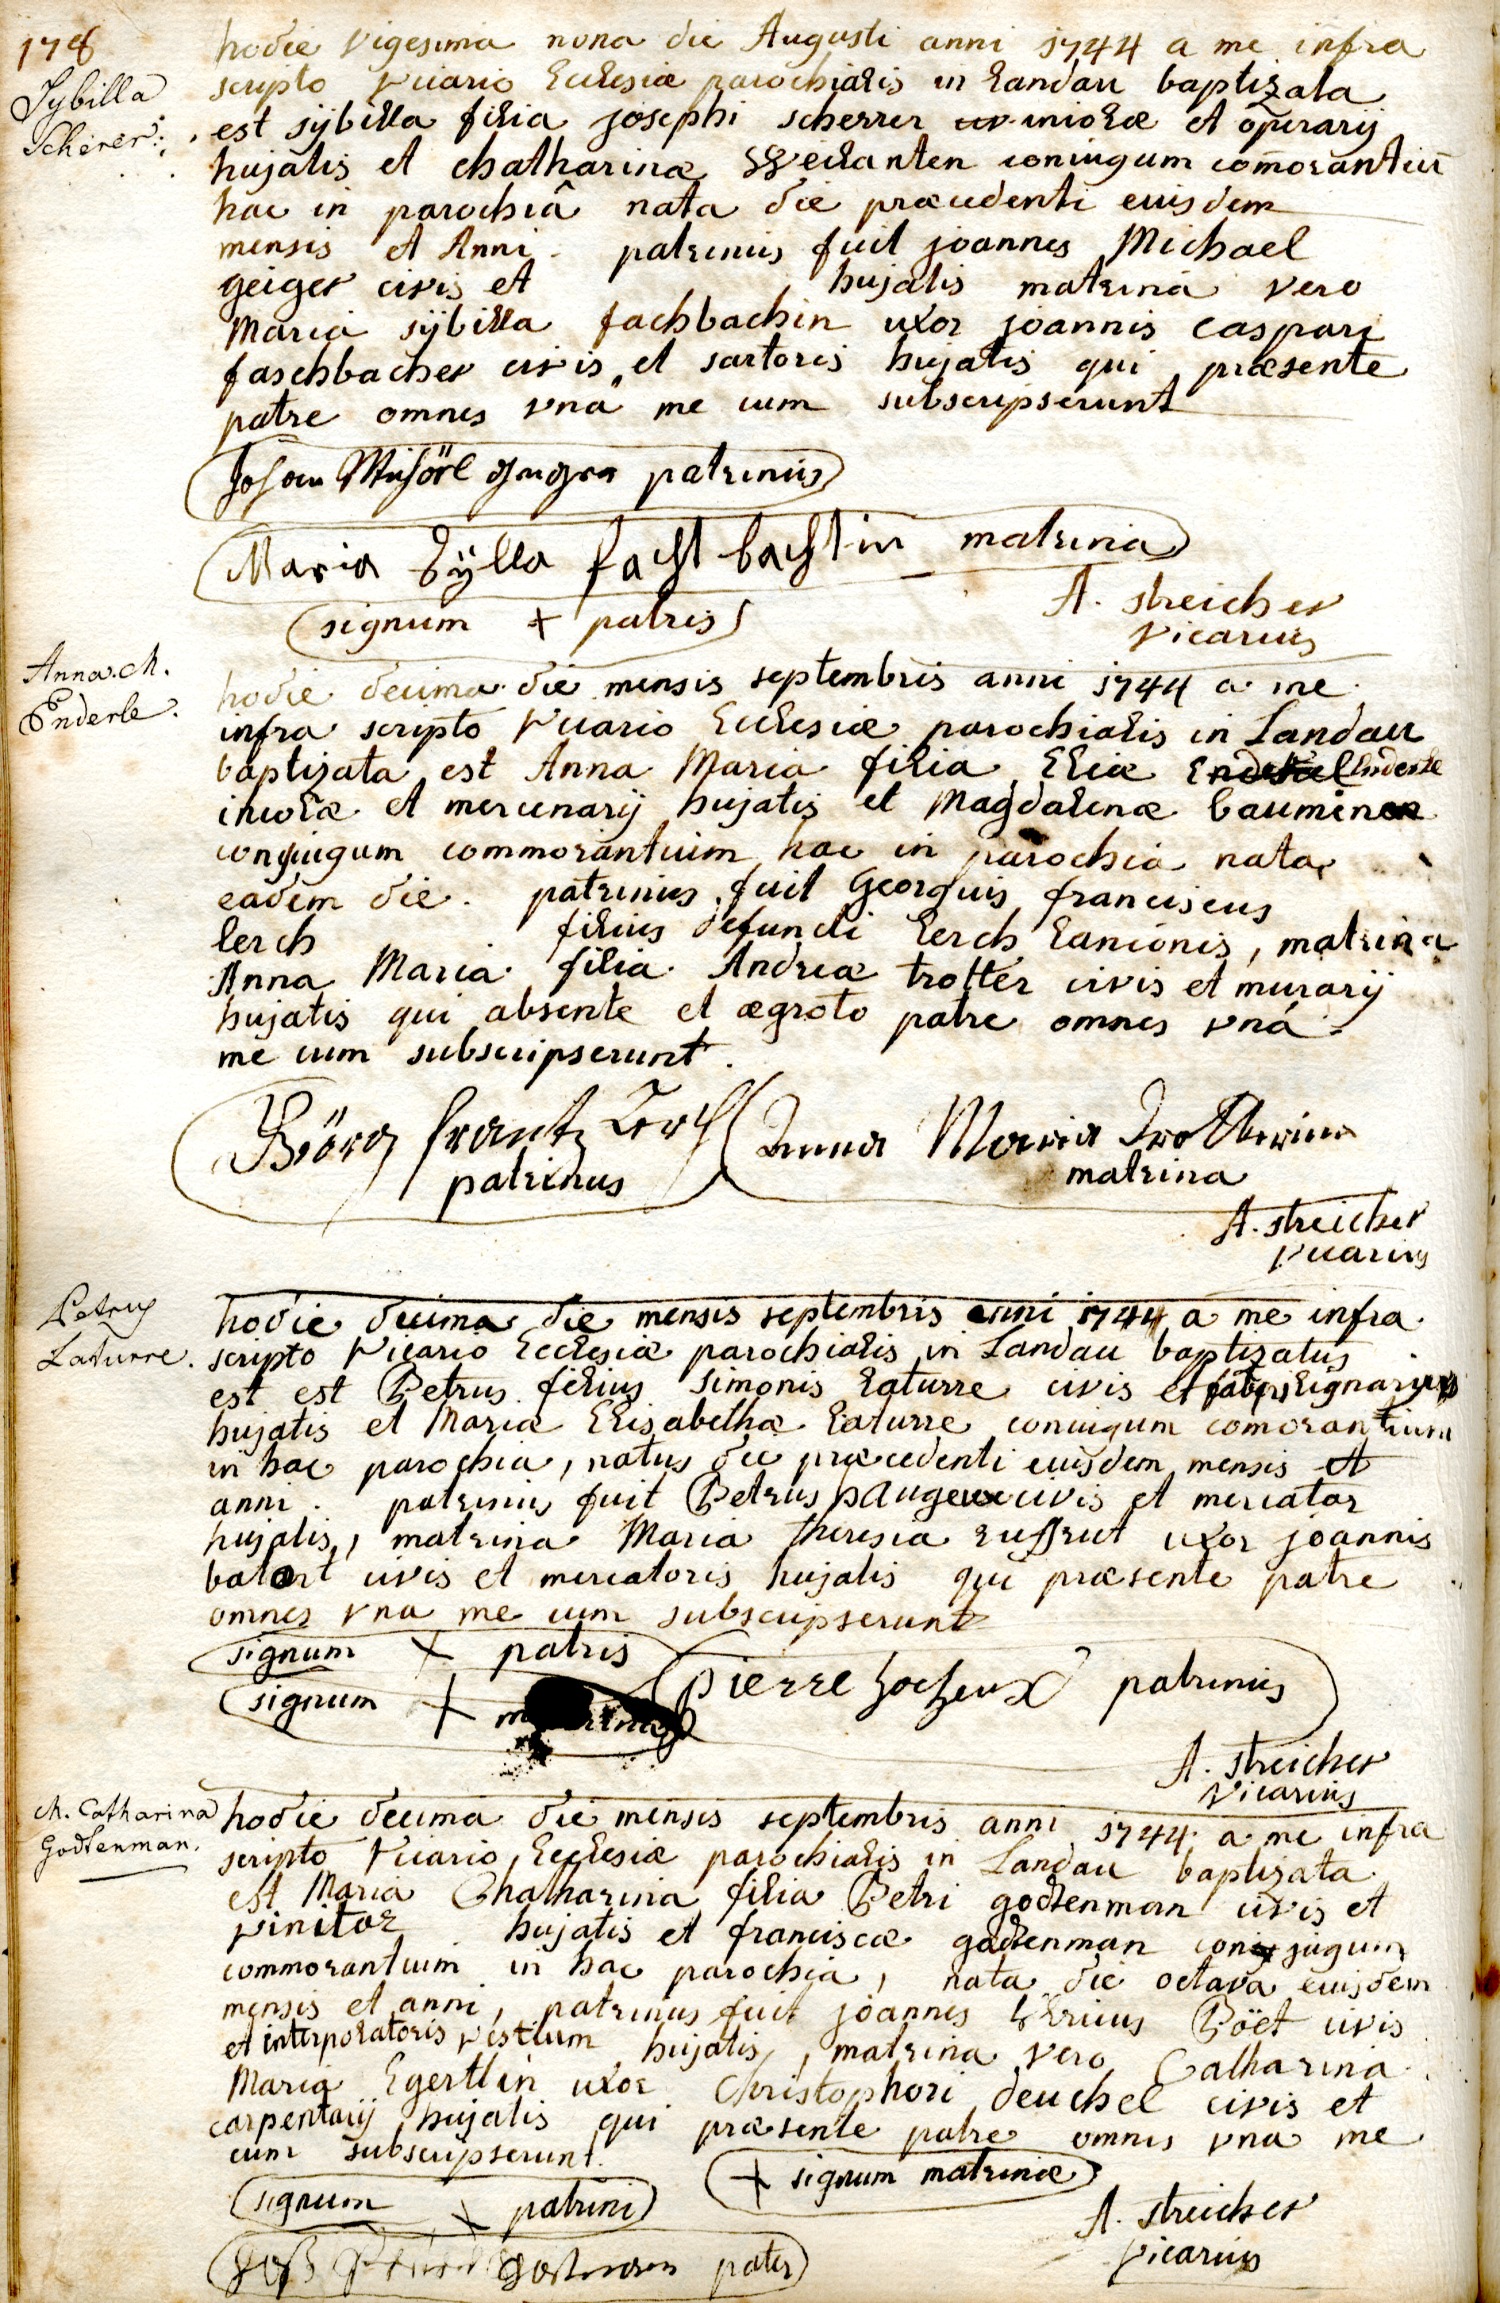 178
Sybilla
Scherer.
hodie vigesima nona die Augusti anni 1744 a me infra
scripto vicario Ecclesiæ parochialis in Landau baptizata
est sÿbilla filia josephi scherrer incolæ et operarij
hujatis et chatharinæ Weilanten coniugum com̄orantiū
hac in parochiâ nata die præcedenti eiusdem
mensis et Anni. patrinus fuit joannes Michael
geiger civis et hujatis matrina vero
Maria sÿbilla fachbachin uxor joannis caspari
faschbacher civis et sartoris hujatis qui præsente
patre omnes vna me cum subscripserunt
Johan Michäel patrinus
Maria Sÿlla fachbachin matrina
signum + patris
A. streicher
vicarius
Anna. M.
Enderle.
hodie decima die mensis septembris anni 1744 a me
infra scripto vicario Ecclesiæ parochialis in Landau
baptizata est Anna Maria filia Eliæ Enderle
incolæ et mercenarij hujatis et Magdalenæ bauminen
conjugum commorantium hac in parochia nata
eadem die. patrinus fuit Georgius franciscus
lerch filius defuncti Lerch Lanionis, matrina
Anna Maria filia Andreæ trotter civis et murarij
hujatis qui absente et ægroto patre omnes vná
me cum subscripserunt.
Görg frantz Lerch
patrinus
Anna Maria Trotterin
matrina
A. streicher
vicarius
Petrus
Laturre.
hodie decima die mensis septembris anni 1744 a me infra
scripto vicario Ecclesiæ parochialis in Landau baptizatus
est est Petrus filius simonis laturre civis et fabri lignarij
hujatis et Mariæ Elisabethæ laturre coniugum comorantium
in hac parochia, natus die præcedenti eiusdem mensis et
anni. patrinus fuit Petrus civis et mercator
hujatis, matrina Maria theresia ruffrut uxor joannis
batort civis et mercatoris hujatis qui præsente patre
omnes vna me cum subscripserunt
signum + patris
signum + matrina
pierre patrinus
A. streicher
vicarius
M. Catharina
Godtenman.
hodie decima die mensis septembris anni 1744 a me infra
scripto vicario Ecclesiæ parochialis in Landau baptizata
est Maria Chatharina filia Petri godtenman civis et
vinitor hujatis et franciscæ godtenman conjugum
commorantium in hac parochia, nata die octava eiusdem
mensis et anni, patrinus fuit joannes Ulricus Böet civis
et interpolatoris vestium hujatis, matrina vero Catharina
Maria Egertlin uxor Christophori deuchel civis et
carpentarij hujatis qui præsente patre omnes vna me
cum subscripserunt.
+ signum matrinæ
signum + patrini
A. streicher
vicarius
pater